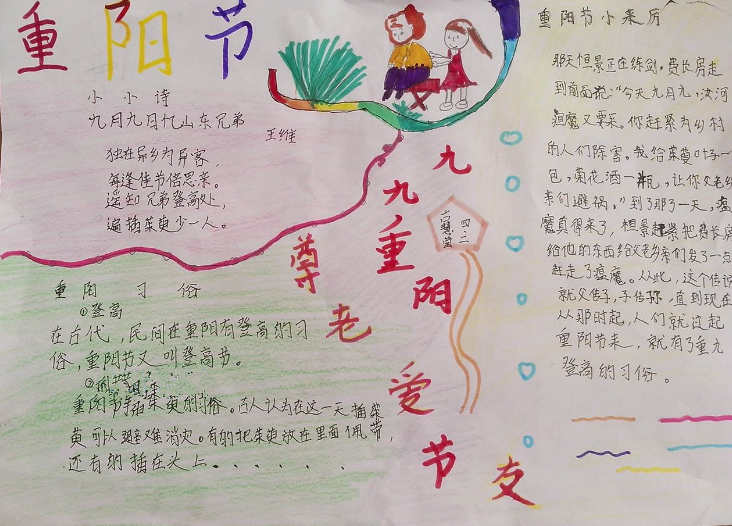 重阳节
小小诗
九月九日忆山东兄弟
王维
独在异乡为异客，
每逢佳节倍思亲。
遥知兄弟登高处，
遍插茱萸少一人。
重阳习俗
①登高
在古代，民间在重阳有登高的习
俗，重阳节又叫登高节。
②
重阳节插茱萸的习俗。古人认为在这一天插茱
萸可以避难消灾。有的把茱萸放在里面佩带，
还有的插在头上......
九九重阳
尊老爱节
友
四.二
重阳节小来历
那天恒景正在练剑。费长房走
到前面说："今天九月九，汝河
瘟魔又要来。你赶紧为乡村
的人们除害。我给茱萸叶子一
包，菊花酒一瓶，让你父老乡
亲们避祸。"到了那一天，瘟
魔真得来了，恒景赶紧把费长房
给他的东西给父老乡亲们发了一点
赶走了瘟魔。从此，这个传说
就父传子，子传孙，直到现在
从那时起，人们就过起
重阳节来，就有了重九
登高的习俗。